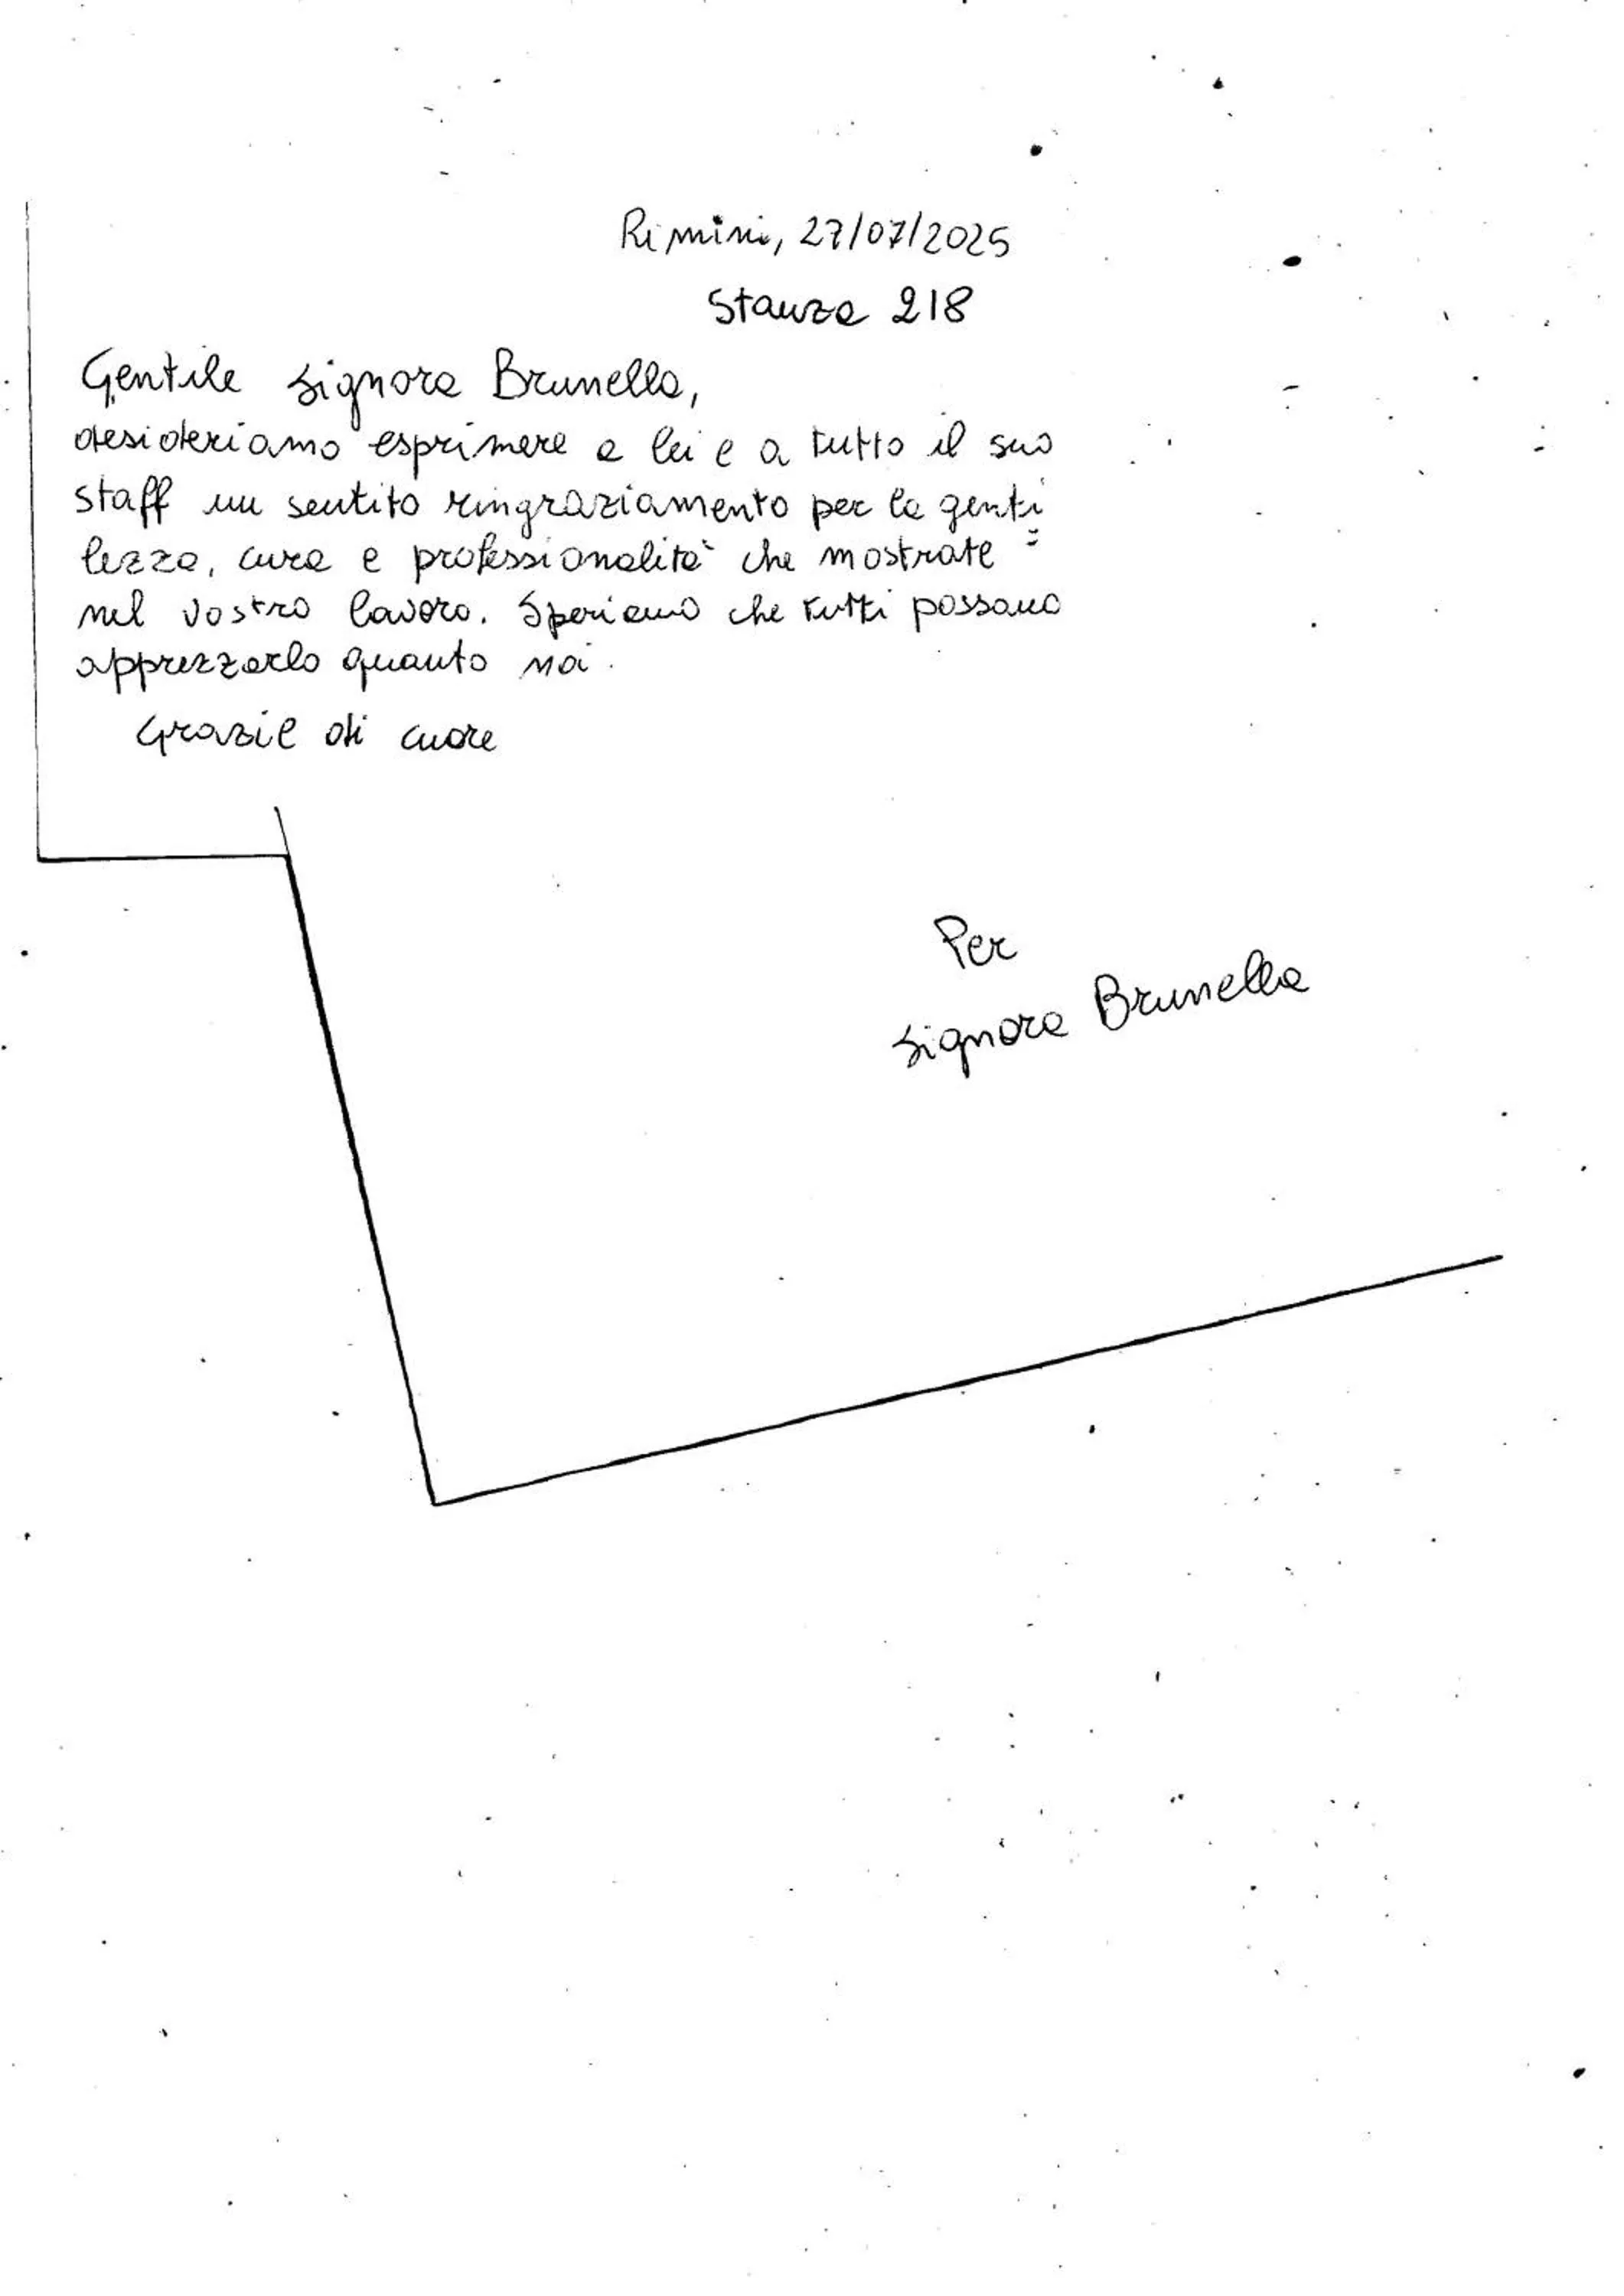 Rimini, 27/07/2025
Stanza 218
Gentile Signora Brunella,
desideriamo esprimere a lei e a tutto il suo
staff un sentito ringraziamento per la genti=
lezza, cura e professionalità che mostrate
nel vostro lavoro. Speriamo che tutti possano
apprezzarlo quanto noi.
Grazie di cuore
Per
Signora Brunella